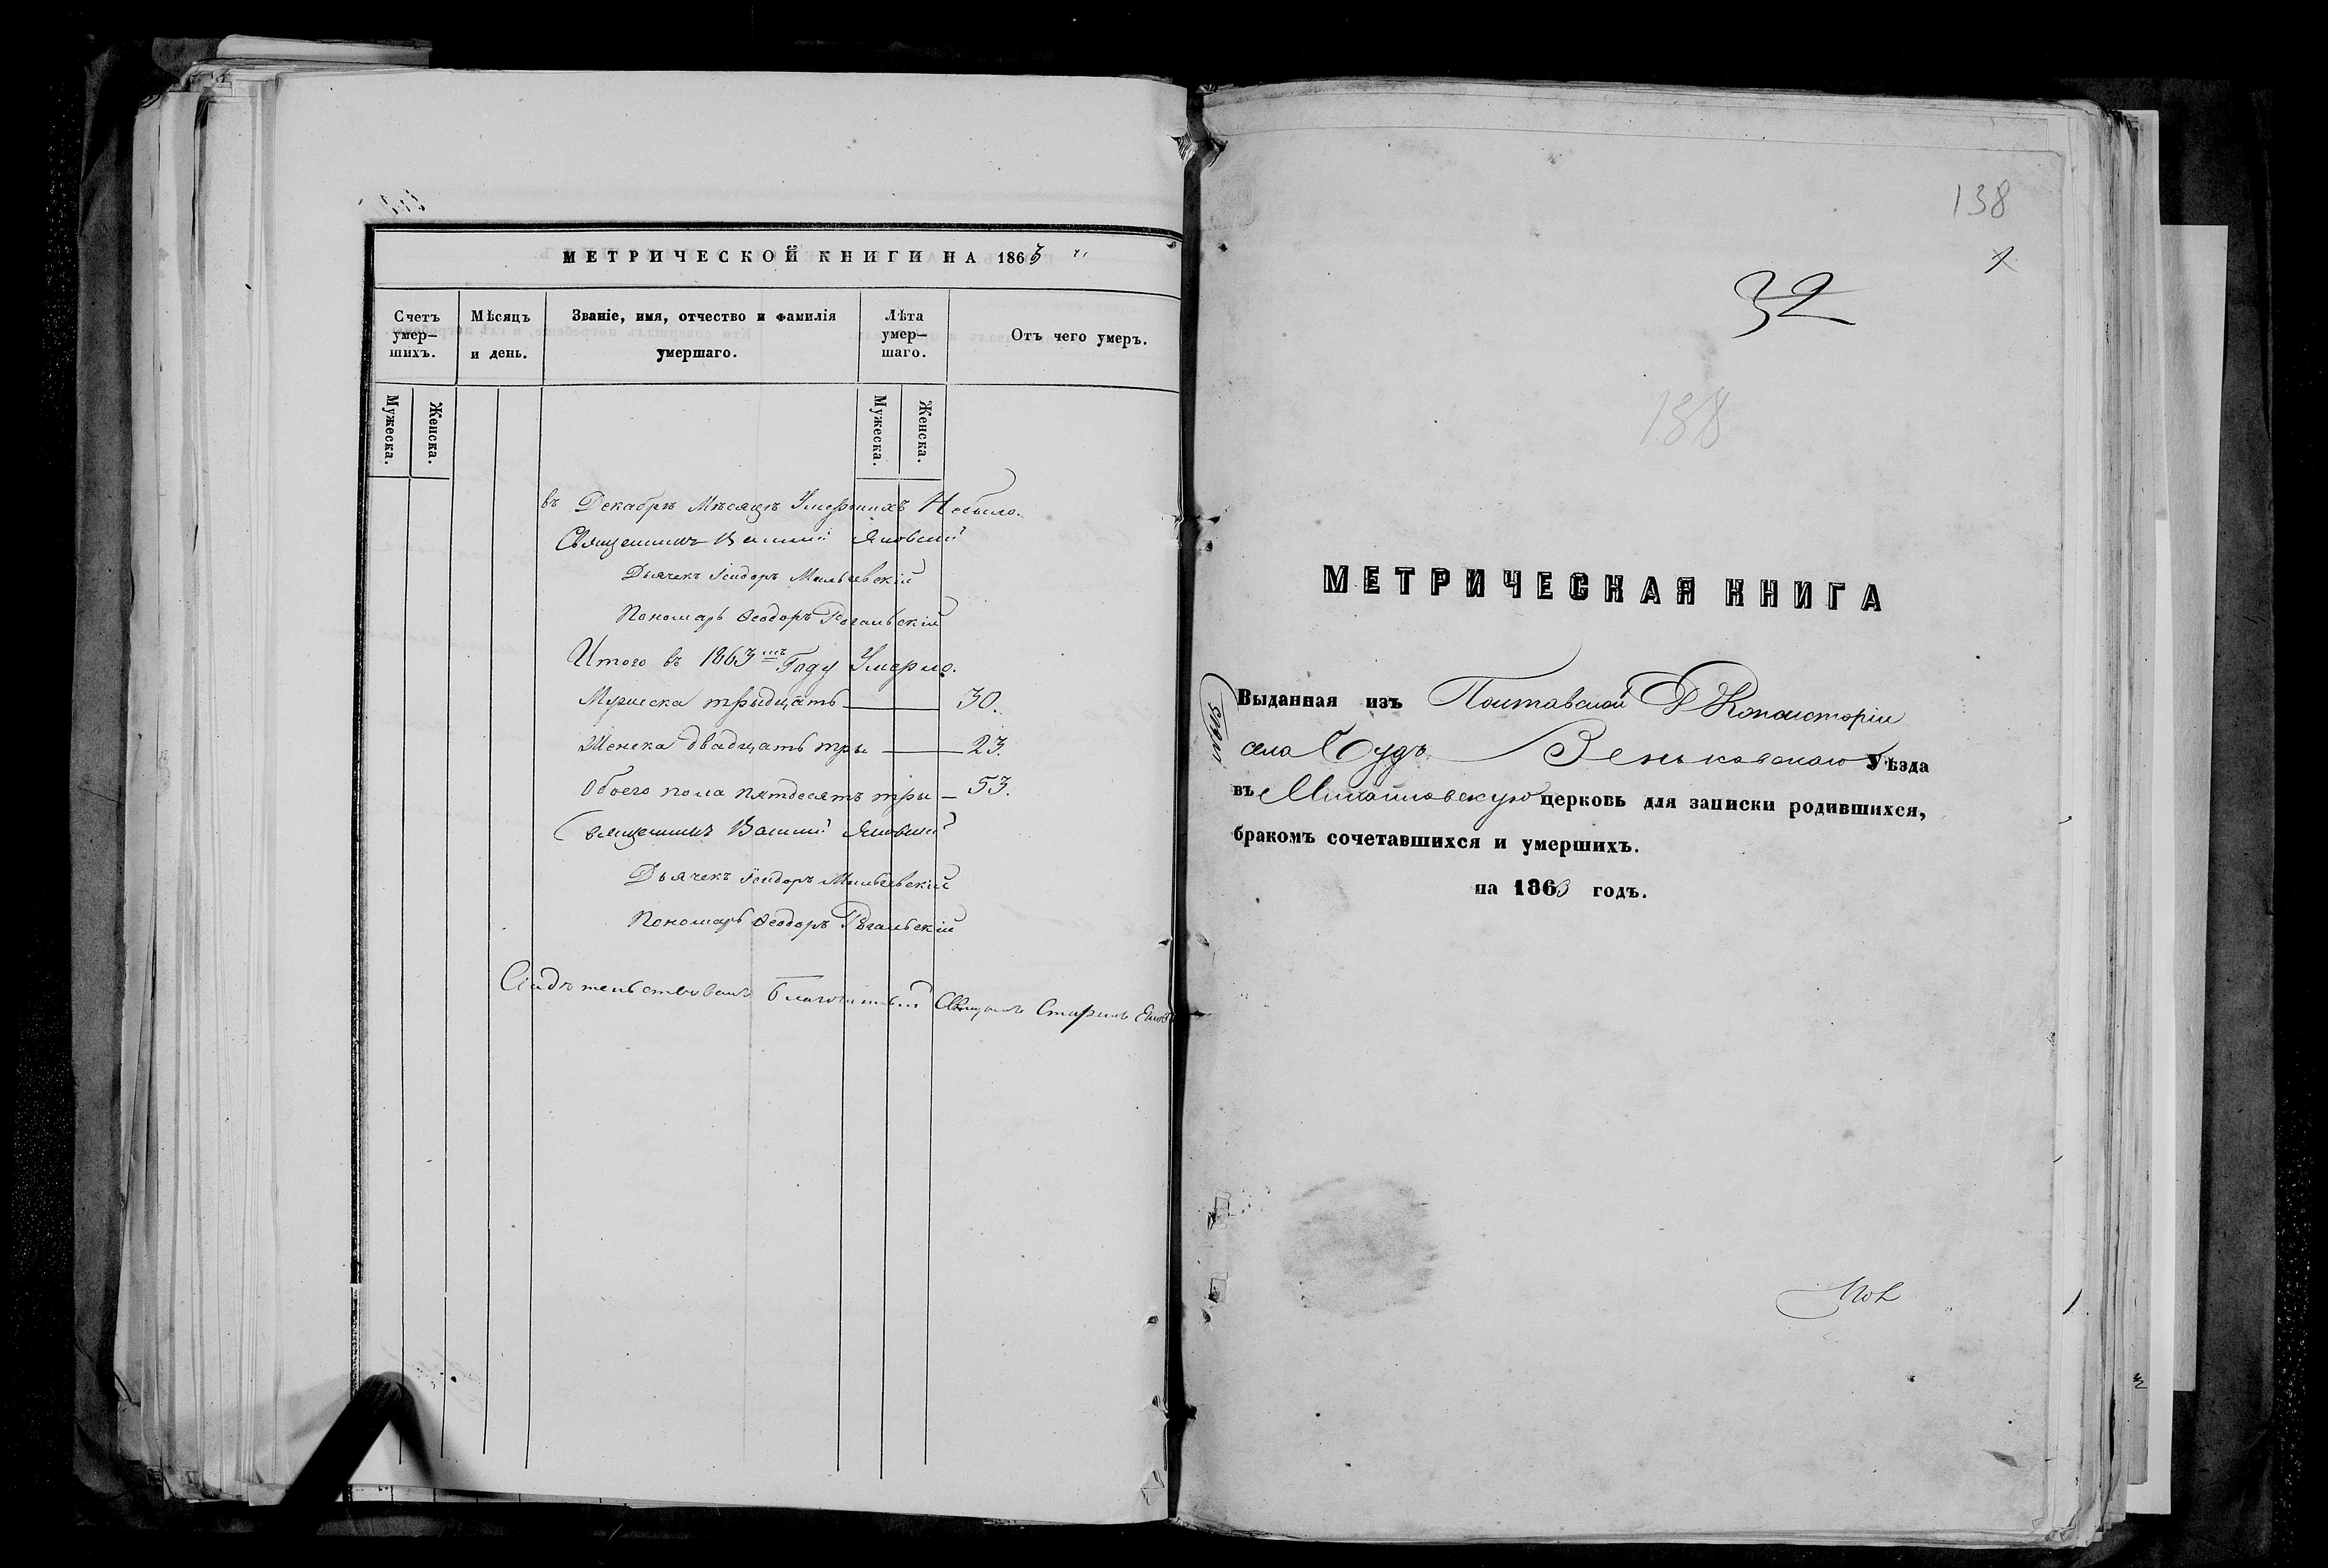 МЕТРИЧЕСКОЙ КНИГИ НА 1863
Счетъ умер-шихъ.
Мѣсяцъ и день.
Званіе, имя, отчество и фамилія умершаго.
Лѣта умер-шаго.
Отъ чего умеръ.
Мужеска.
Женска.
Мужеска.
Женска.
въ Декабрѣ Мѣсяцѣ Умершихъ Небыло.
Священникъ Василий Яновский
Дьячекъ Ісидоръ
Пономарь Ѳеодоръ Рогальскій
Итого въ 1863мъ Году Умерло.
Мужеска тридцать — 30.
Женска двадцать три — 23.
Обоего пола пятдесятъ три — 53.
Священникъ Василий Яновский
Дьячекъ Ісидоръ
Пономарь Ѳеодоръ Рогальскій
Свидѣтельствовалъ Благочинный Священникъ
138
1
32
138
МЕТРИЧЕСКАЯ КНИГА
Выданная изъ Полтавской Д Консисторіи
села Будъ Зеньковскаго Уѣзда
въ Михайловскую церковь для записки родившихся,
бракомъ сочетавшихся и умершихъ.
на 1863 годъ.